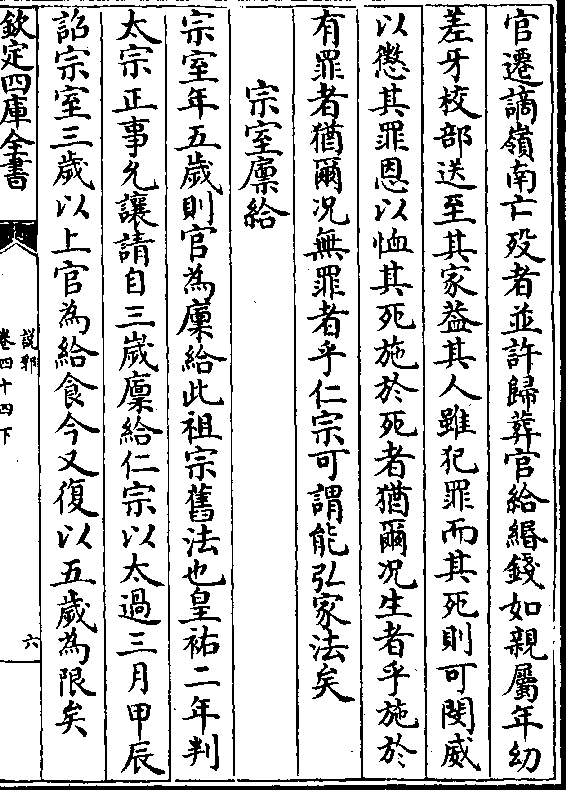 官遷謫嶺南亡殁者並許歸葬官給緡錢如親屬年幼
差牙校部送至其家葢其人雖犯罪而其死則可閔威
以懲其罪恩以恤其死施於死者猶爾况生者乎施於
有罪者猶爾况無罪者乎仁宗可謂能弘家法矣
宗室廩給
宗室年五歲則官為廩給此祖宗舊法也皇祐二年判
太宗正事允讓請自三嵗廩給仁宗以太過三月甲辰
詔宗室三歲以上官為給食今又復以五歲為限矣
欽定四庫全書
說郛
卷四十四下
六